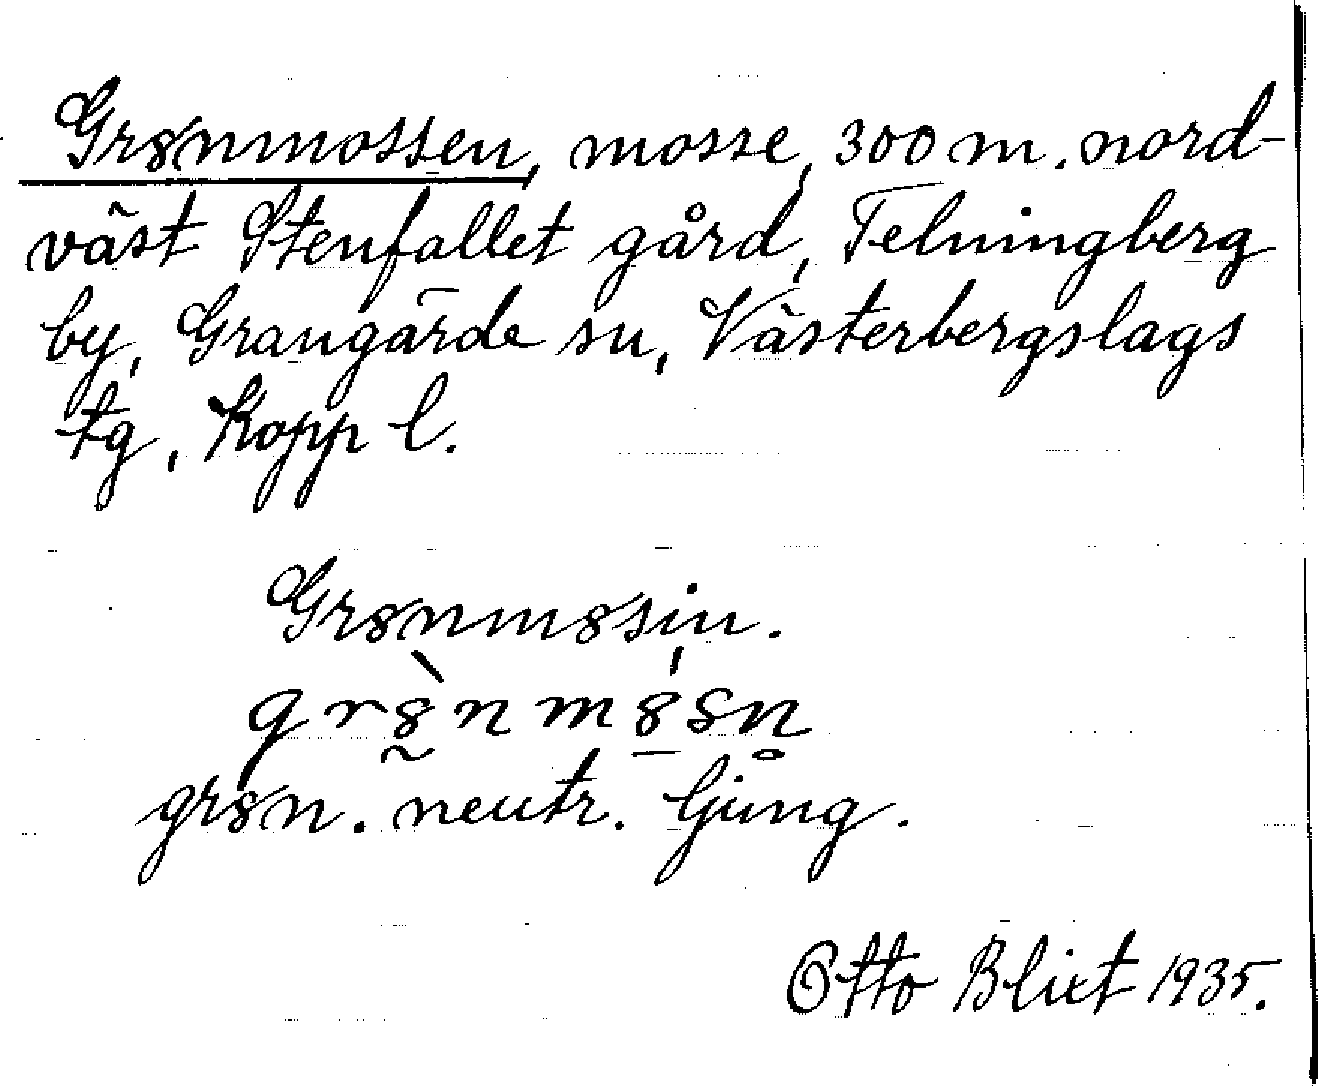 Grȣnmossen, mosse, 300 m. nord-
väst Stenfallet gård, Telningberg
by, Grangärde sn, Västerbergslags
tg, Kopp l.
Grȣnmȣsin.
grȣ̀nmȣ́sn̥
grȣn. neutr. ljung.
Otto Blixt 1935.